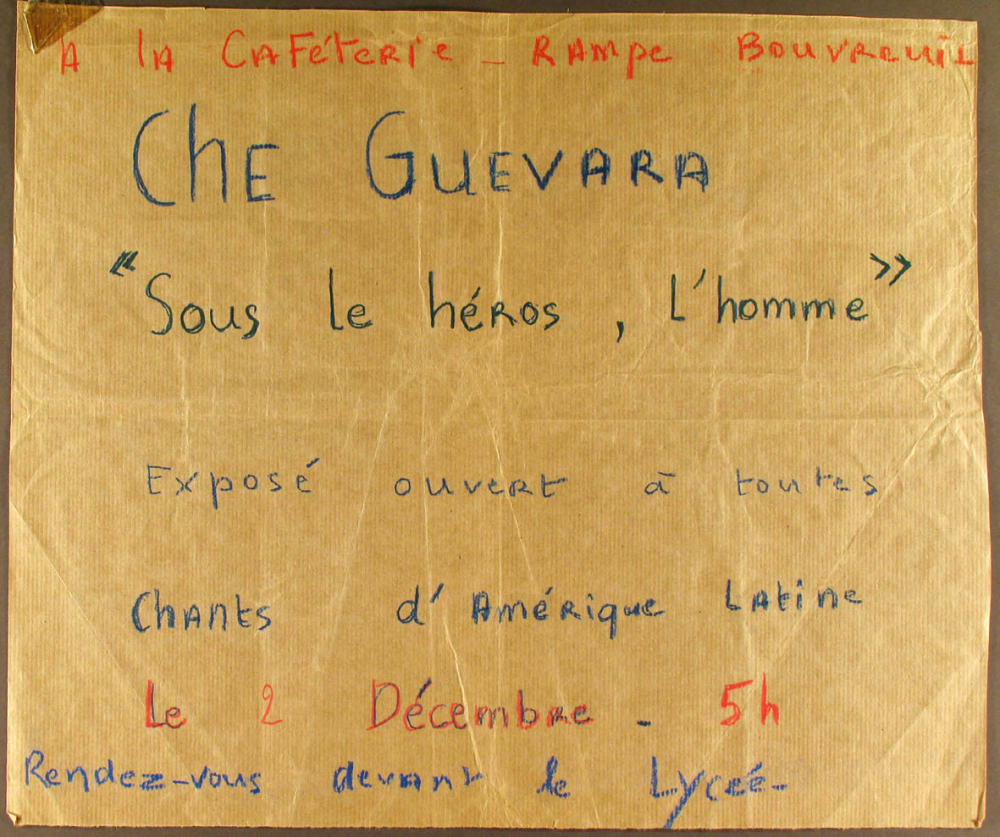 A la Caféterie - Rampe Bouvreuil
Che Guevara
"Sous le héros, l'homme"
Exposé ouvert à toutes
Chants d'Amérique Latine
Le 2 Décembre - 5h
Rendez-vous devant le Lyceé-